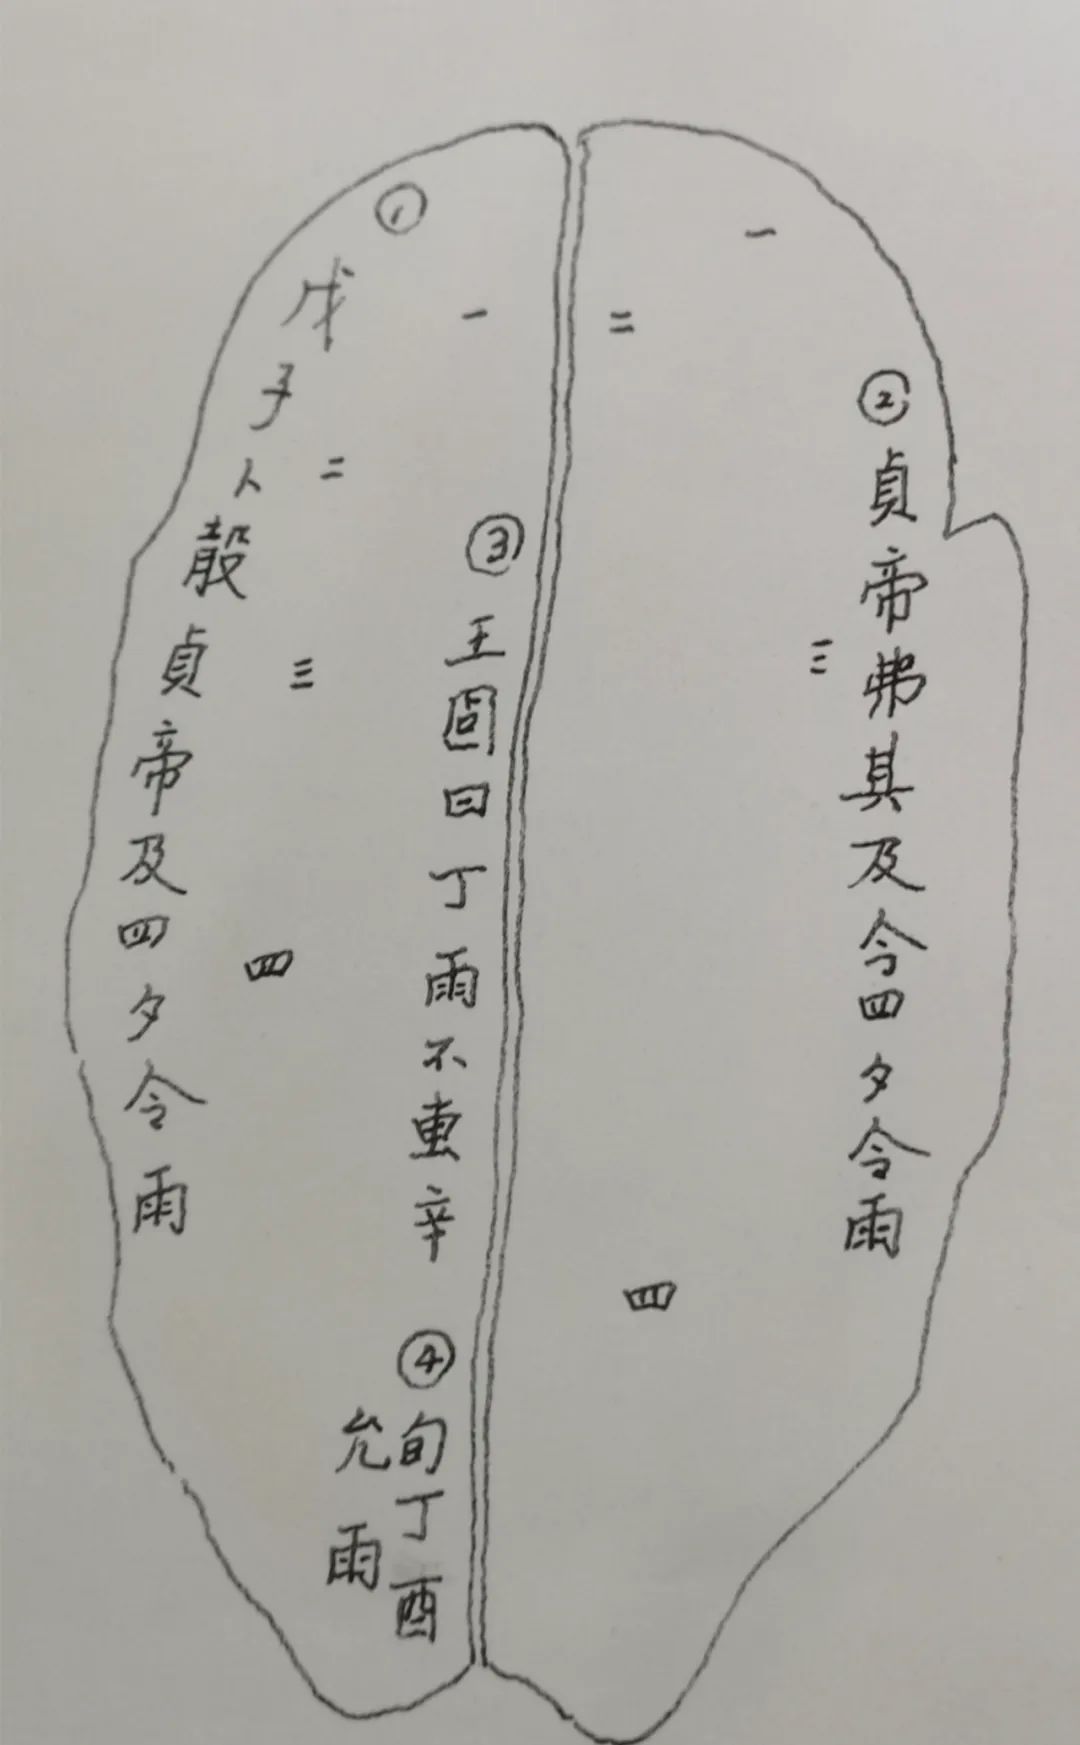 ①
戊子卜㱿貞帝及四夕令雨
一
二
三
四
②
貞帝弗其及今四夕令雨
一
二
三
四
③
王固曰丁雨不叀辛
④
旬丁酉
允雨